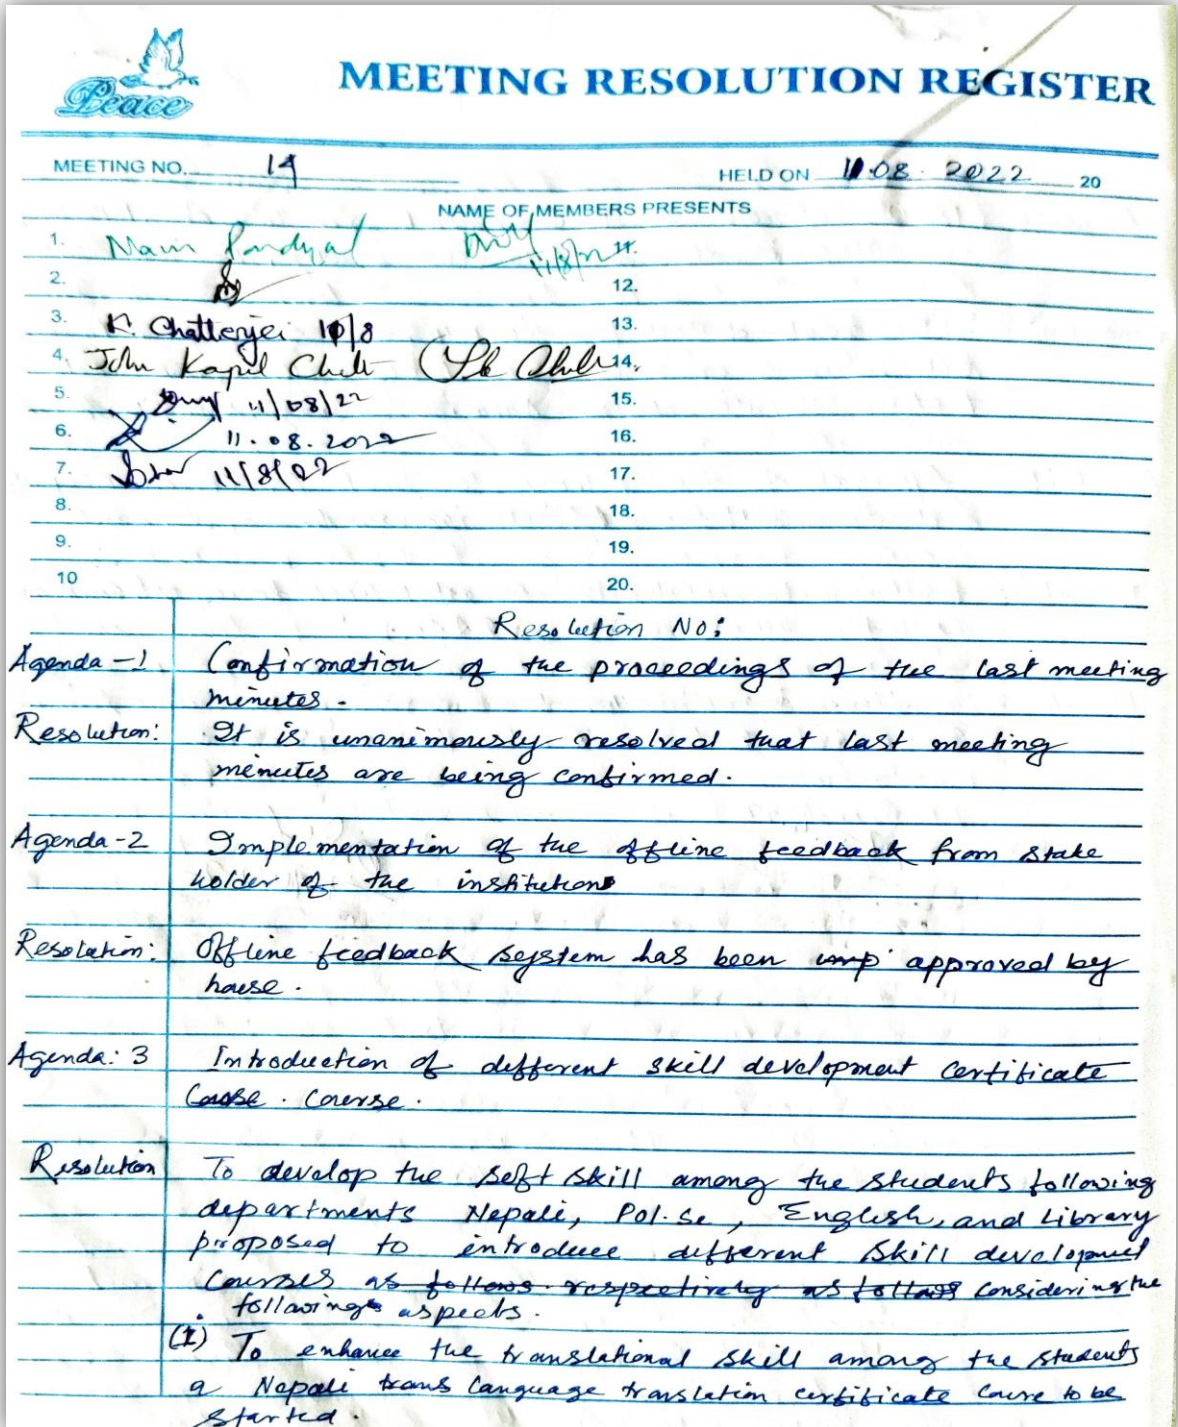 Peace
MEETING RESOLUTION REGISTER
MEETING NO. 14 HELD ON 11.08.2022 20
NAME OF MEMBERS PRESENTS
1. 11/8/22 11.
2. 12.
3. K. Chatterjei 10/8 13.
4. John Kapil 14.
5. 11/08/22 15.
6. 11.08.2022 16.
7. 11/8/22 17.
8. 18.
9. 19.
10 20.
Resolution No:
Agenda-1 Confirmation of the proceedings of the last meeting
minutes.
Resolution: It is unanimously resolved that last meeting
minutes are being confirmed.
Agenda-2 Implementation of the offline feedback from stake
holder of the institution
Resolution: Offline feedback system has been imp approved by
house.
Agenda: 3 Introduction of different skill development certificate
Course.
Resolution To develop the soft skill among the students following
departments Nepali, Pol.Sc, English, and Library
proposed to introduce different skill development
Courses as follows respectively as follows considering the
following aspects.
(1) To enhance the translational skill among the students
a Nepali trans language translation certificate Coure to be
started.